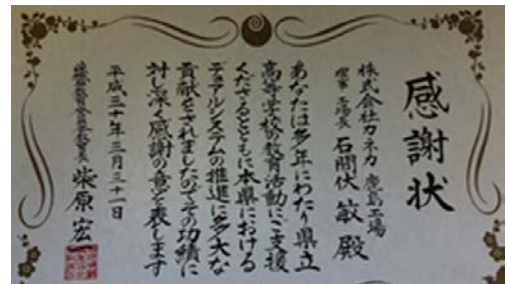 感謝状
株式会社カネカ 鹿島工場
理事 工場長 石間伏 敏 殿
あなたは多年にわたり県立
高等学校の教育活動にご支援
くださるとともに本県における
デュアルシステムの推進に多大な
貢献をされましたのでその功績に
対し深く感謝の意を表します
平成三十年三月三十一日
教育委員会教育長 柴原 宏